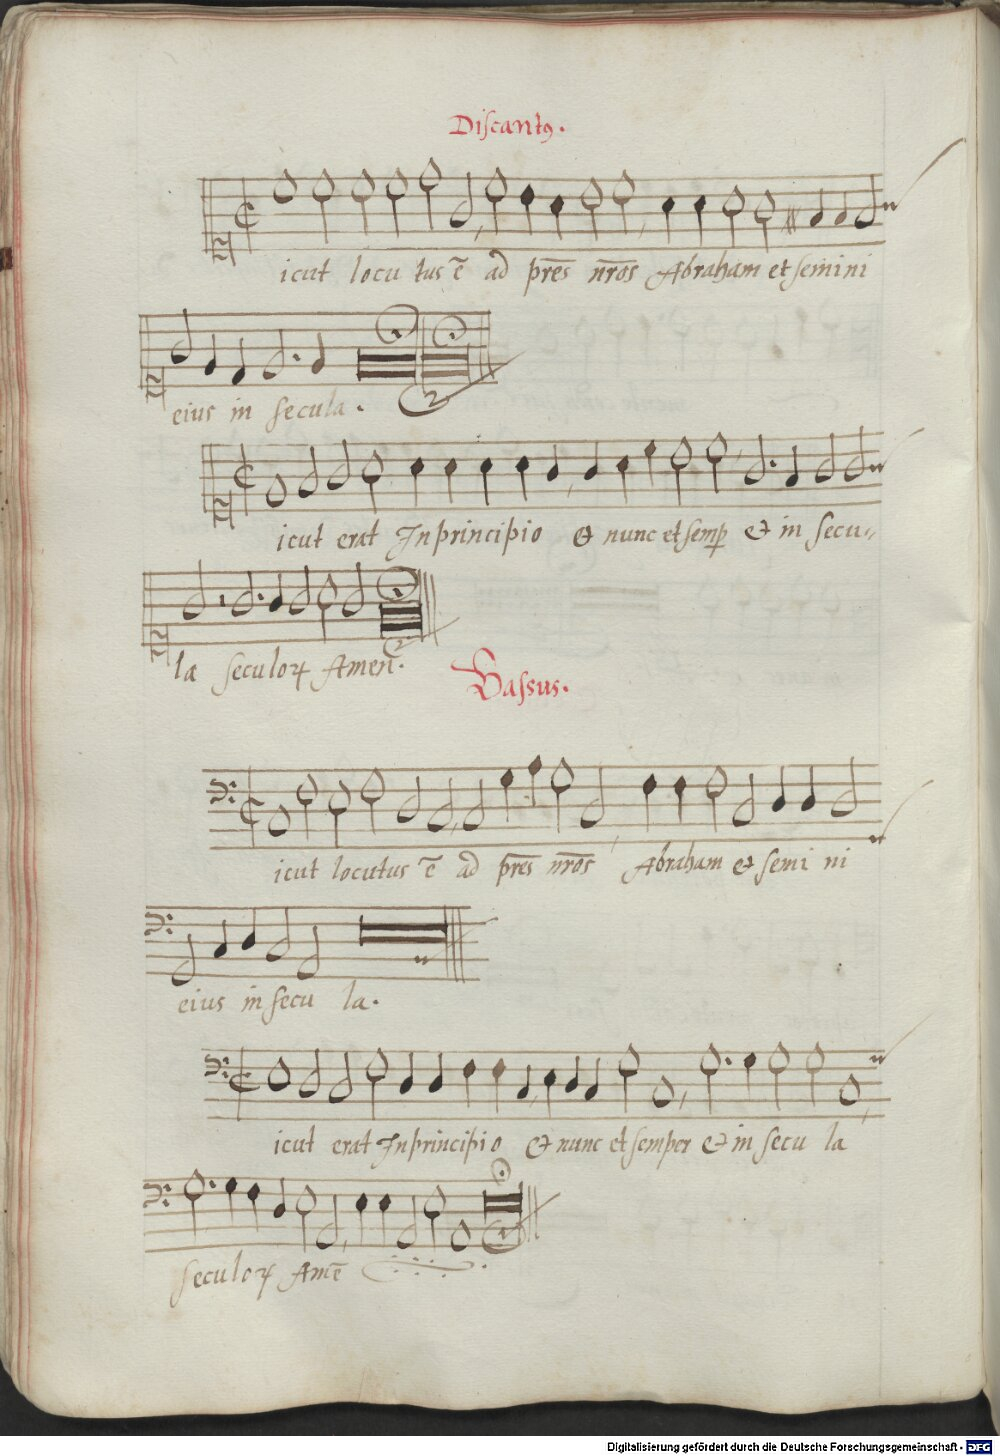 Discantꝯ.
icut locu tus ē ad p̄res n̄ros Abraham et semini
eius in secula.
icut erat In principio & nunc et semꝑ & in secu-
la seculoꝝ Amen.
Bassus.
icut locutus ē ad p̄res n̄ros Abraham & semi ni
eius in secu la.
icut erat In principio & nunc et semper & in secu la
seculoꝝ Amē
Digitalisierung gefördert durch die Deutsche Forschungsgemeinschaft - DFG